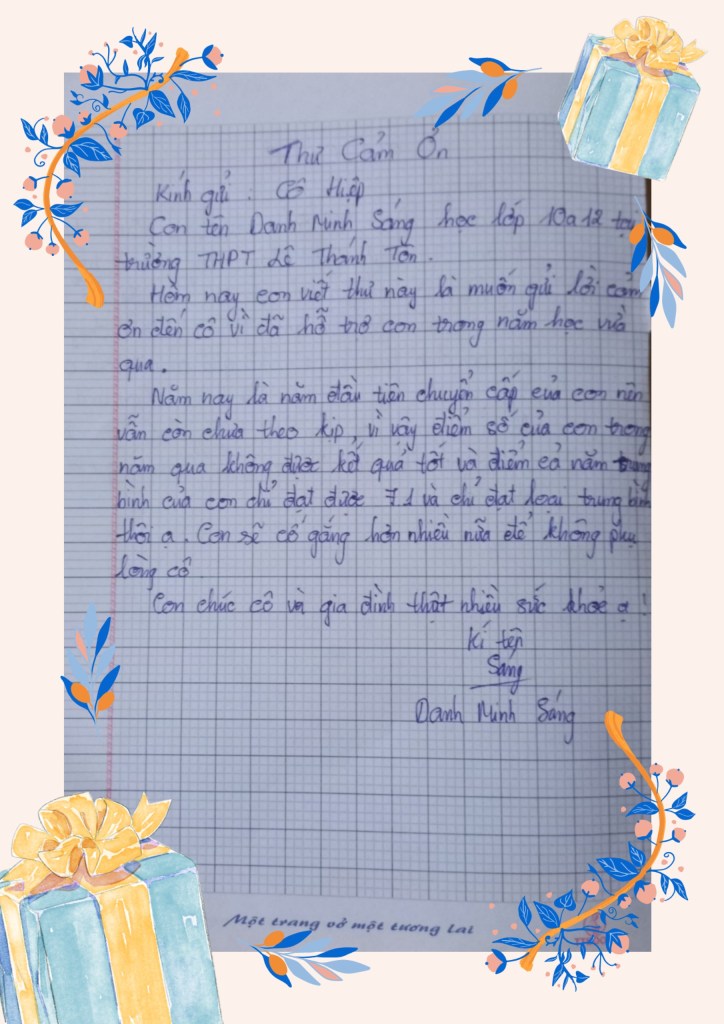 Thư Cảm Ơn
Kính gửi : Cô Hiệp
Con tên Danh Minh Sáng học lớp 10a12 tại
trường THPT Lê Thánh Tôn.
Hôm nay con viết thư này là muốn gửi lời cảm
ơn đến cô vì đã hỗ trợ con trong năm học vừa
qua.
Năm nay là năm đầu tiên chuyển cấp của con nên
vẫn còn chưa theo kịp, vì vậy điểm số của con trong
năm qua không được kết quả tốt và điểm cả năm trung
bình của con chỉ đạt được 7.1 và chỉ đạt loại trung bình
thôi ạ. Con sẽ cố gắng hơn nhiều nữa để không phụ
lòng cô
Con chúc cô và gia đình thật nhiều sức khoẻ ạ!
Kí tên
Sáng
Danh Minh Sáng
Một trang vở một tương lai